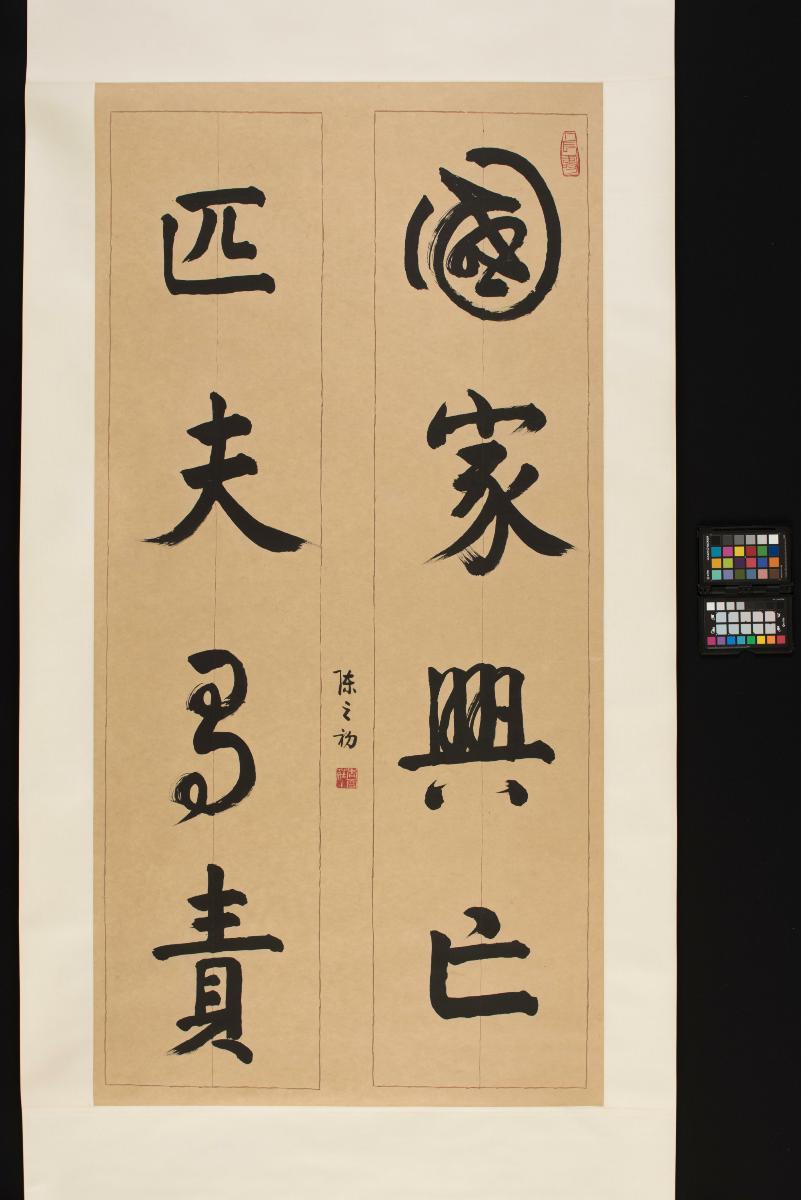 國家興亡
匹夫有責
陈之初